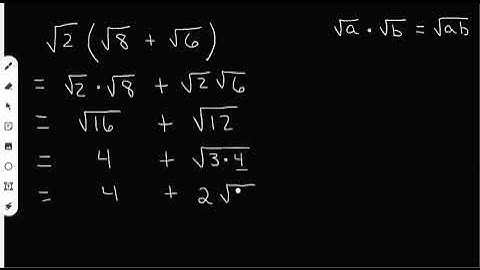 √2 (√8 + √6)
√a · √b = √ab
= √2 · √8 + √2 √6
= √16 + √12
= 4 + √3·4
= 4 + 2√